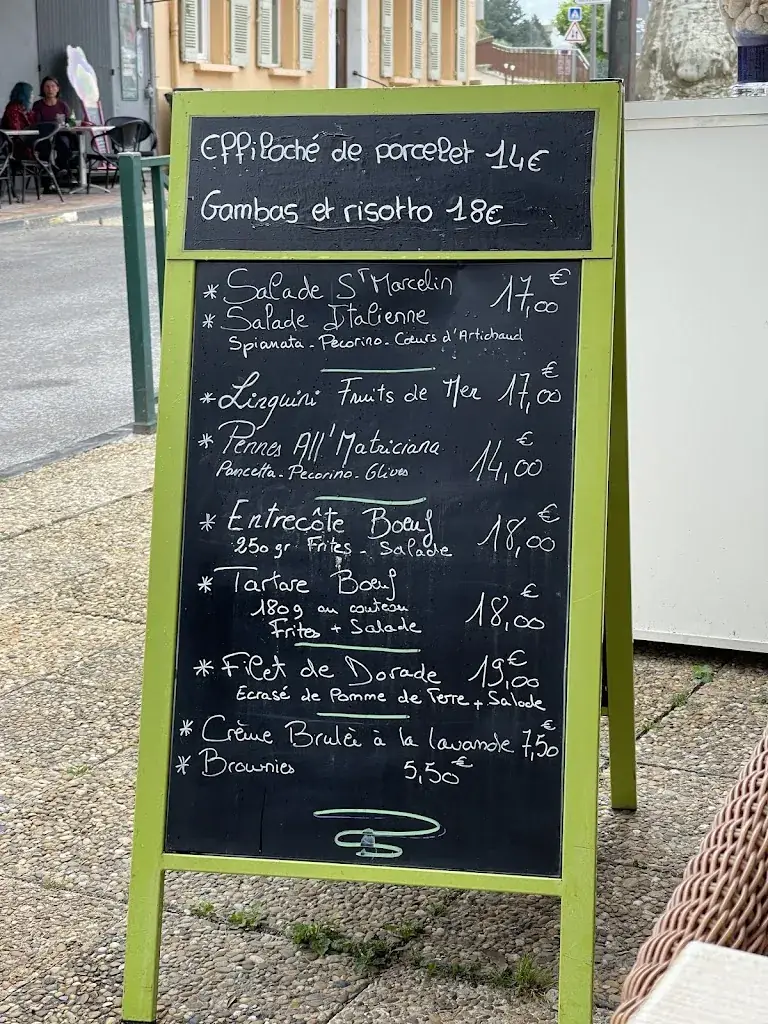 Effiloché de porcelet 14€
Gambas et risotto 18€
* Salade St Marcelin 17,00€
* Salade Italienne
Spianata - Pecorino - Cœurs d'Artichaud
* Linguini Fruits de Mer 17,00€
* Pennes All'Matriciana 14,00€
Pancetta - Pecorino - Olives
* Entrecôte Bœuf 18,00€
250gr Frites - Salade
* Tartare Bœuf 18,00€
180g au couteau
Frites + Salade
* Filet de Dorade 19,00€
Ecrasé de Pomme de Terre + Salade
* Crème Brulée à la lavande 7,50€
* Brownies 5,50€